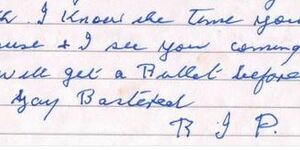 h. I Know the Time you
use & I see you coming
will get a Bullet before
Gay Bastered
R I P.